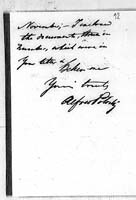 November; - I enclose
the documents, three in
number, which were in
Your letter
Believe me
Yours truly
Alfred